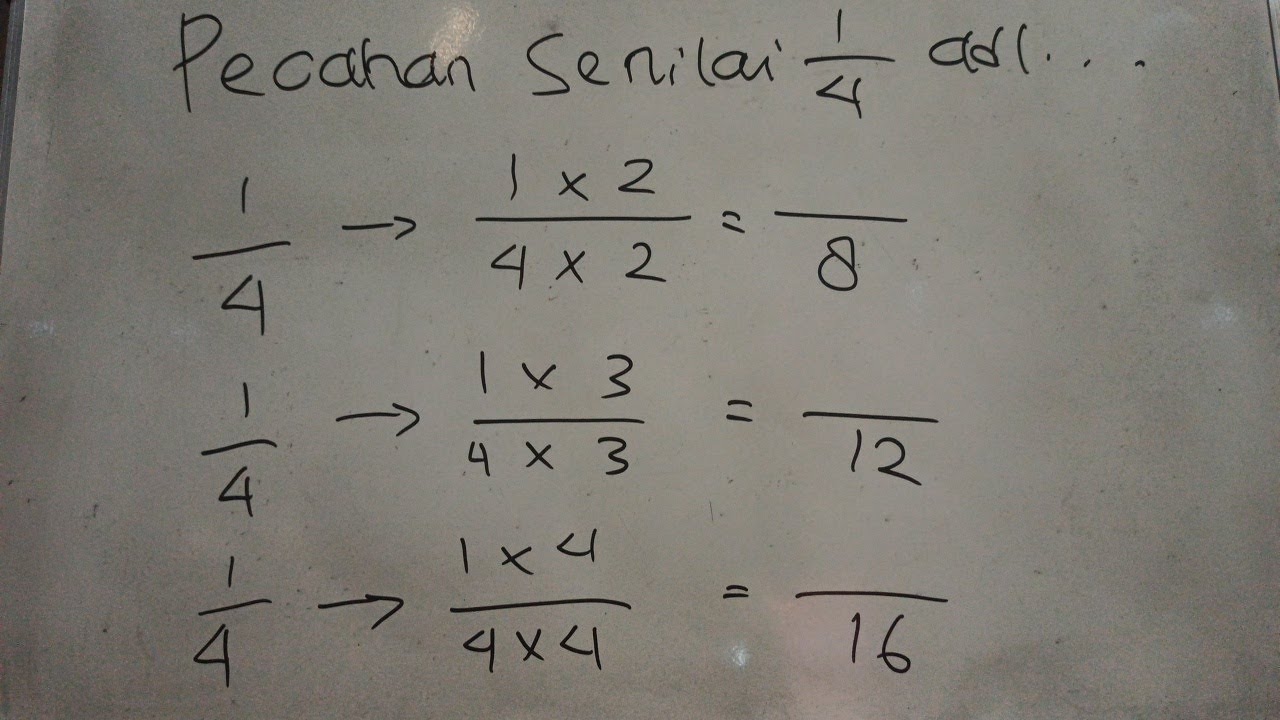 Pecahan Senilai 1/4 adl...
1/4 → (1 x 2)/(4 x 2) = /8
1/4 → (1 x 3)/(4 x 3) = /12
1/4 → (1 x 4)/(4 x 4) = /16